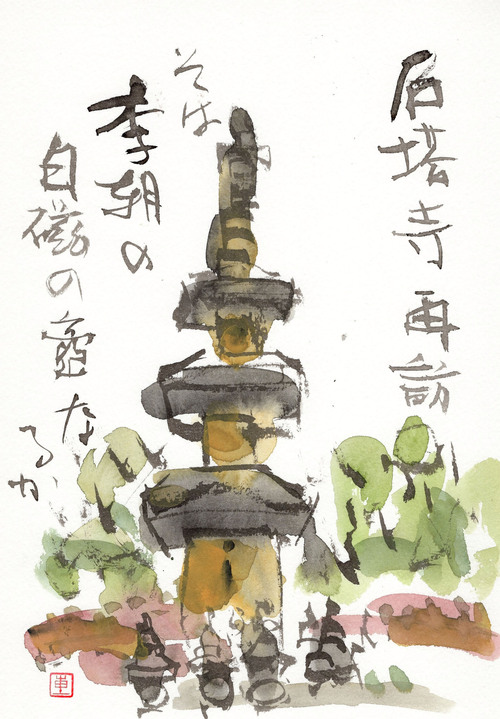 石塔寺再訪
そは
李朝の
白磁の壺な
るか